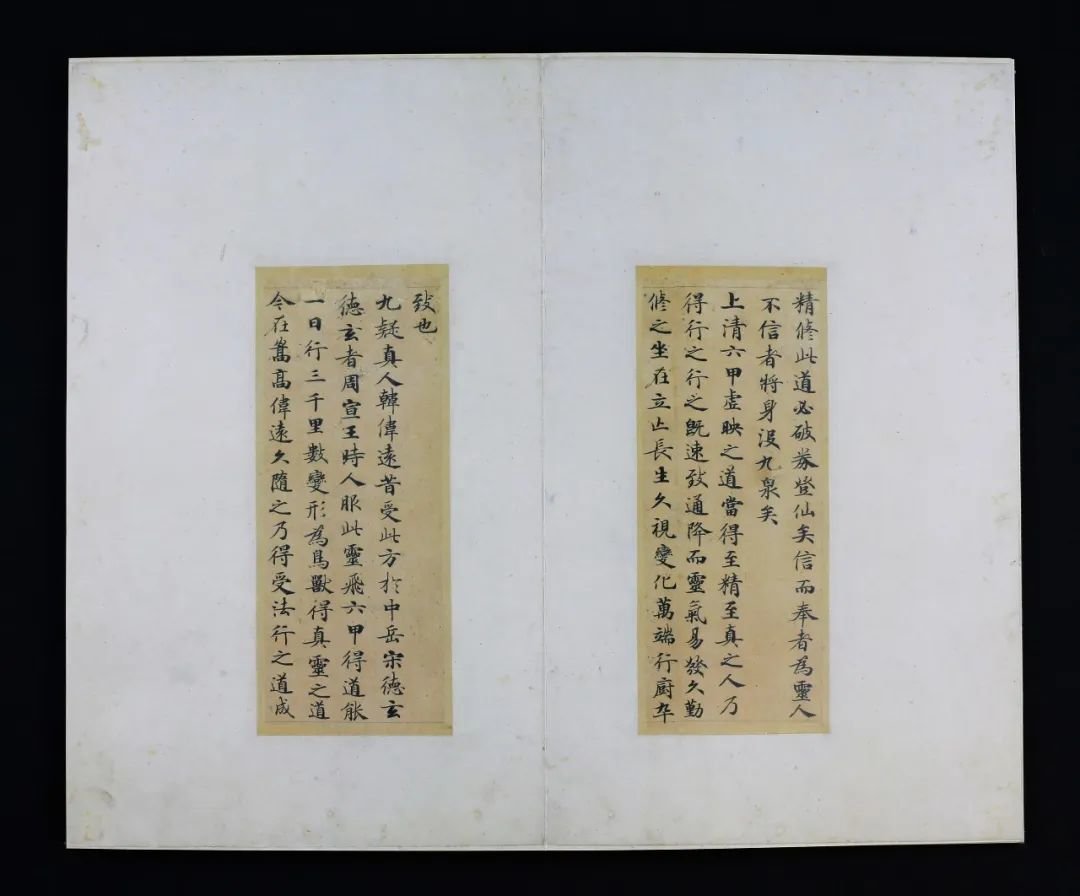 精脩此道必破券登仙矣信而奉者為靈人
不信者將身没九泉矣
上清六甲虛映之道當得至精至真之人乃
得行之行之既速致通降而靈氣易發久勤
脩之坐在立亡長生久視變化萬端行廚卒
致也
九疑真人韓偉遠昔受此方於中岳宋德玄
德玄者周宣王時人服此靈飛六甲得道能
一日行三千里數變形為鳥獸得真靈之道
今在嵩高偉遠久隨之乃得受法行之道成